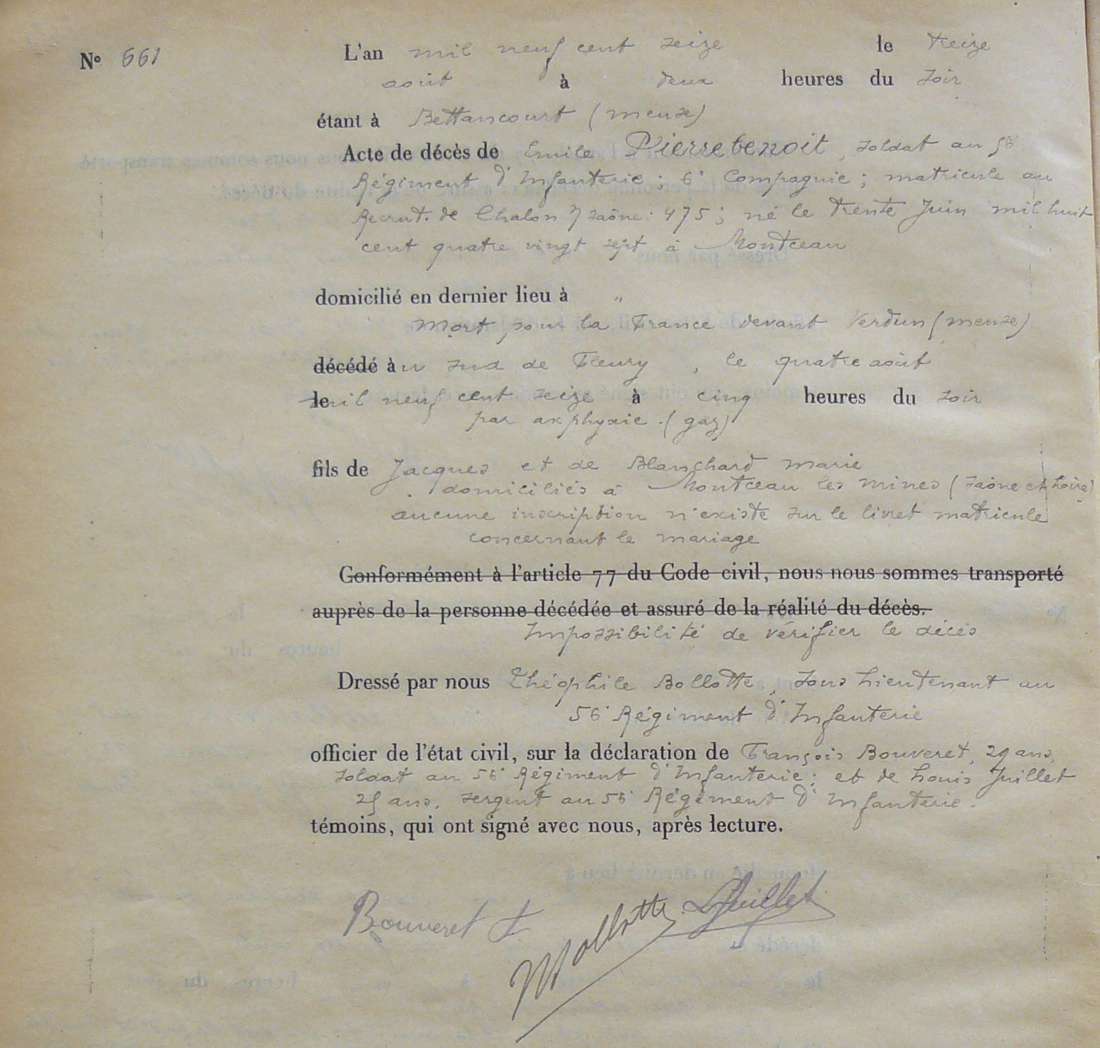 N° 661
L'an mil neuf cent seize le treize
août à deux heures du soir
étant à Bettancourt (meuse)
Acte de décès de Emile Pierrebenoit, soldat au 56
Régiment d'Infanterie; 6e Compagnie; matricule au
Recrut. de Chalon s/ saône: 475; né le trente Juin mil huit
cent quatre vingt sept à Montceau
domicilié en dernier lieu à "
Mort pour la France devant Verdun (meuse)
décédé au sud de Fleury, le quatre août
le mil neuf cent seize à cinq heures du soir
par axphyxie (gaz)
fils de Jacques et de Blanchard marie
domiciliés à Montceau les mines (saône et Loire)
aucune inscription n'existe sur le livret matricule
concernant le mariage
Conformément à l'article 77 du Code civil, nous nous sommes transporté
auprès de la personne décédée et assuré de la réalité du décès.
Impossibilité de vérifier le décès
Dressé par nous Théophile Bollotte, sous Lieutenant au
56e Régiment d'Infanterie
officier de l'état civil, sur la déclaration de François Bouveret, 29 ans,
soldat au 56e Régiment d'Infanterie; et de Louis Juillet
25 ans, sergent au 56e Régiment d'Infanterie.
témoins, qui ont signé avec nous, après lecture.
Bouveret f LJuillet
Bollotte